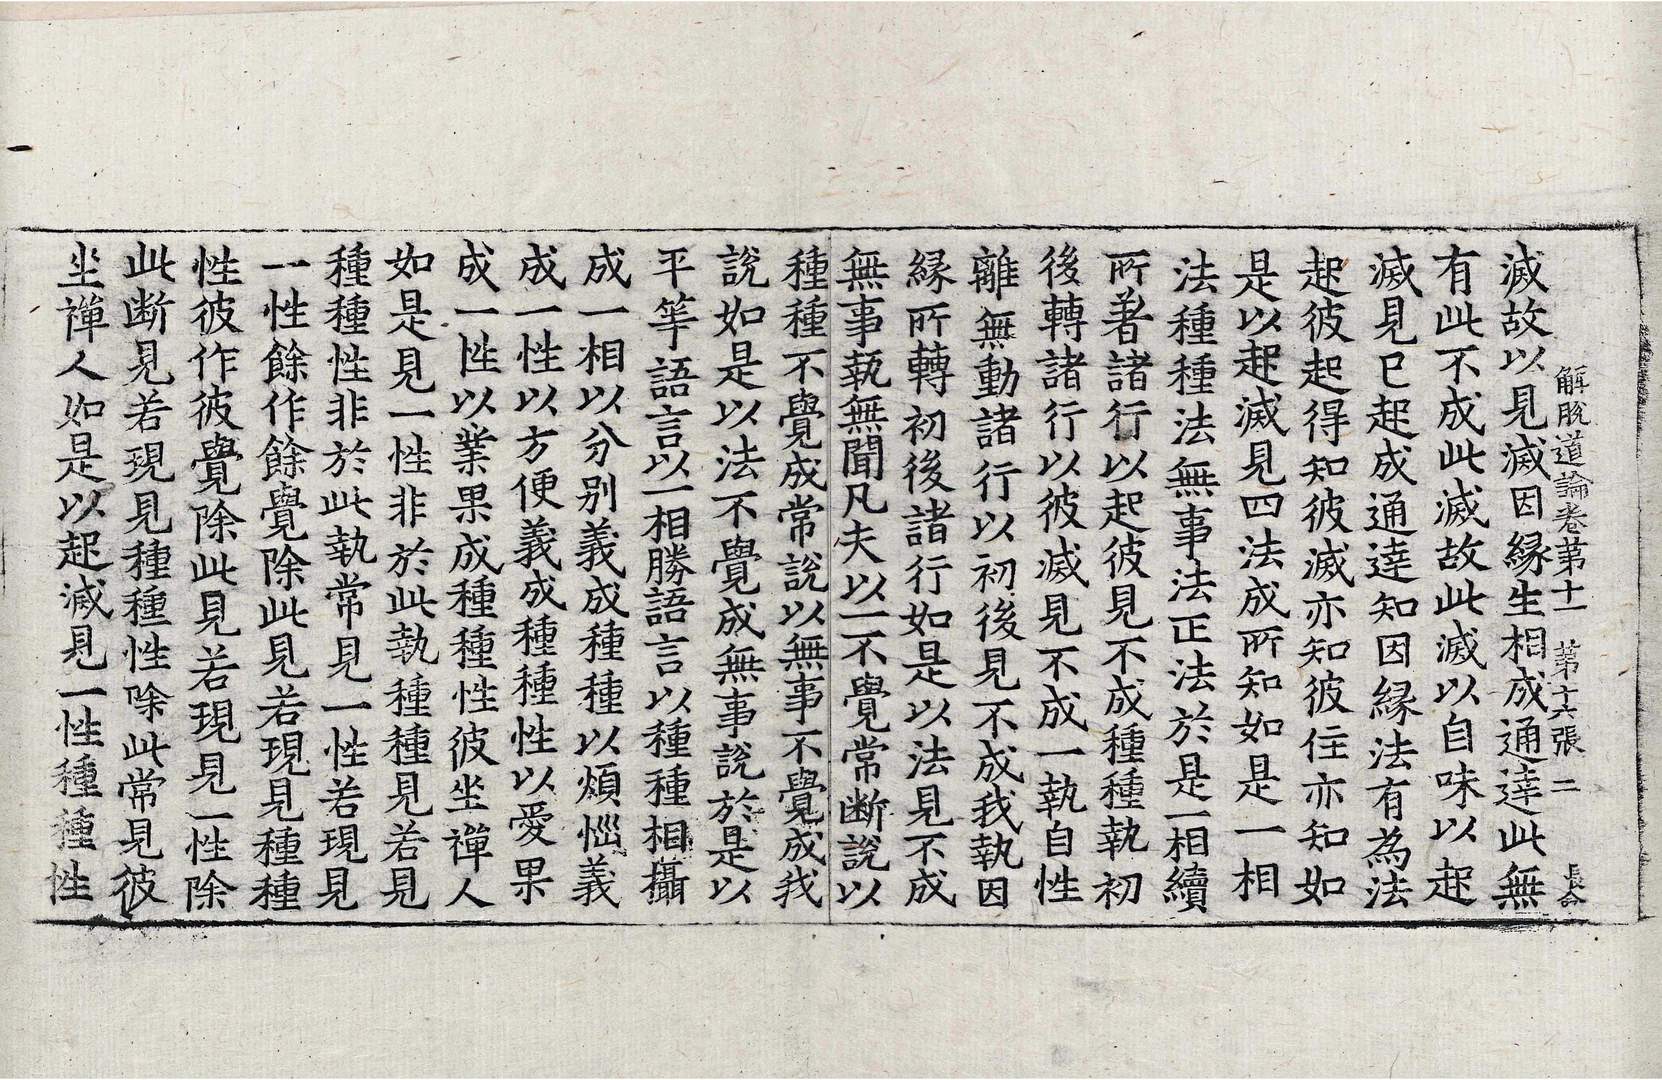 解脫道論卷第十一 第十六張 二
滅故以見滅因緣生相成通達此無
有此不成此滅故此滅以自味以起
滅見已起成通達知因緣法有為法
起彼起得知彼滅亦知彼住亦知如
是以起滅見四法成所知如是一相
法種種法無事法正法於是一相續
所著諸行以起彼見不成種種執初
後轉諸行以彼滅見不成一執自性
離無動諸行以初後見不成我執因
緣所轉初後諸行如是以法見不成
無事執無聞凡夫以一不覺常断說以
種種不覺成常說以無事不覺成我
說如是以法不覺成無事說於是以
平等語言以一相勝語言以種種相攝
成一相以分別義成種種以煩惱義
成一性以方便義成種種性以愛果
成一性以業果成種種性彼坐禪人
如是見一性非於此執種種見若見
種種性非於此執常見一性若現見
一性餘作餘覺除此見若現見種種
性彼作彼覺除此見若現見一性除
此断見若現見種種性除此常見彼
坐禪人如是以起滅見一性種種性